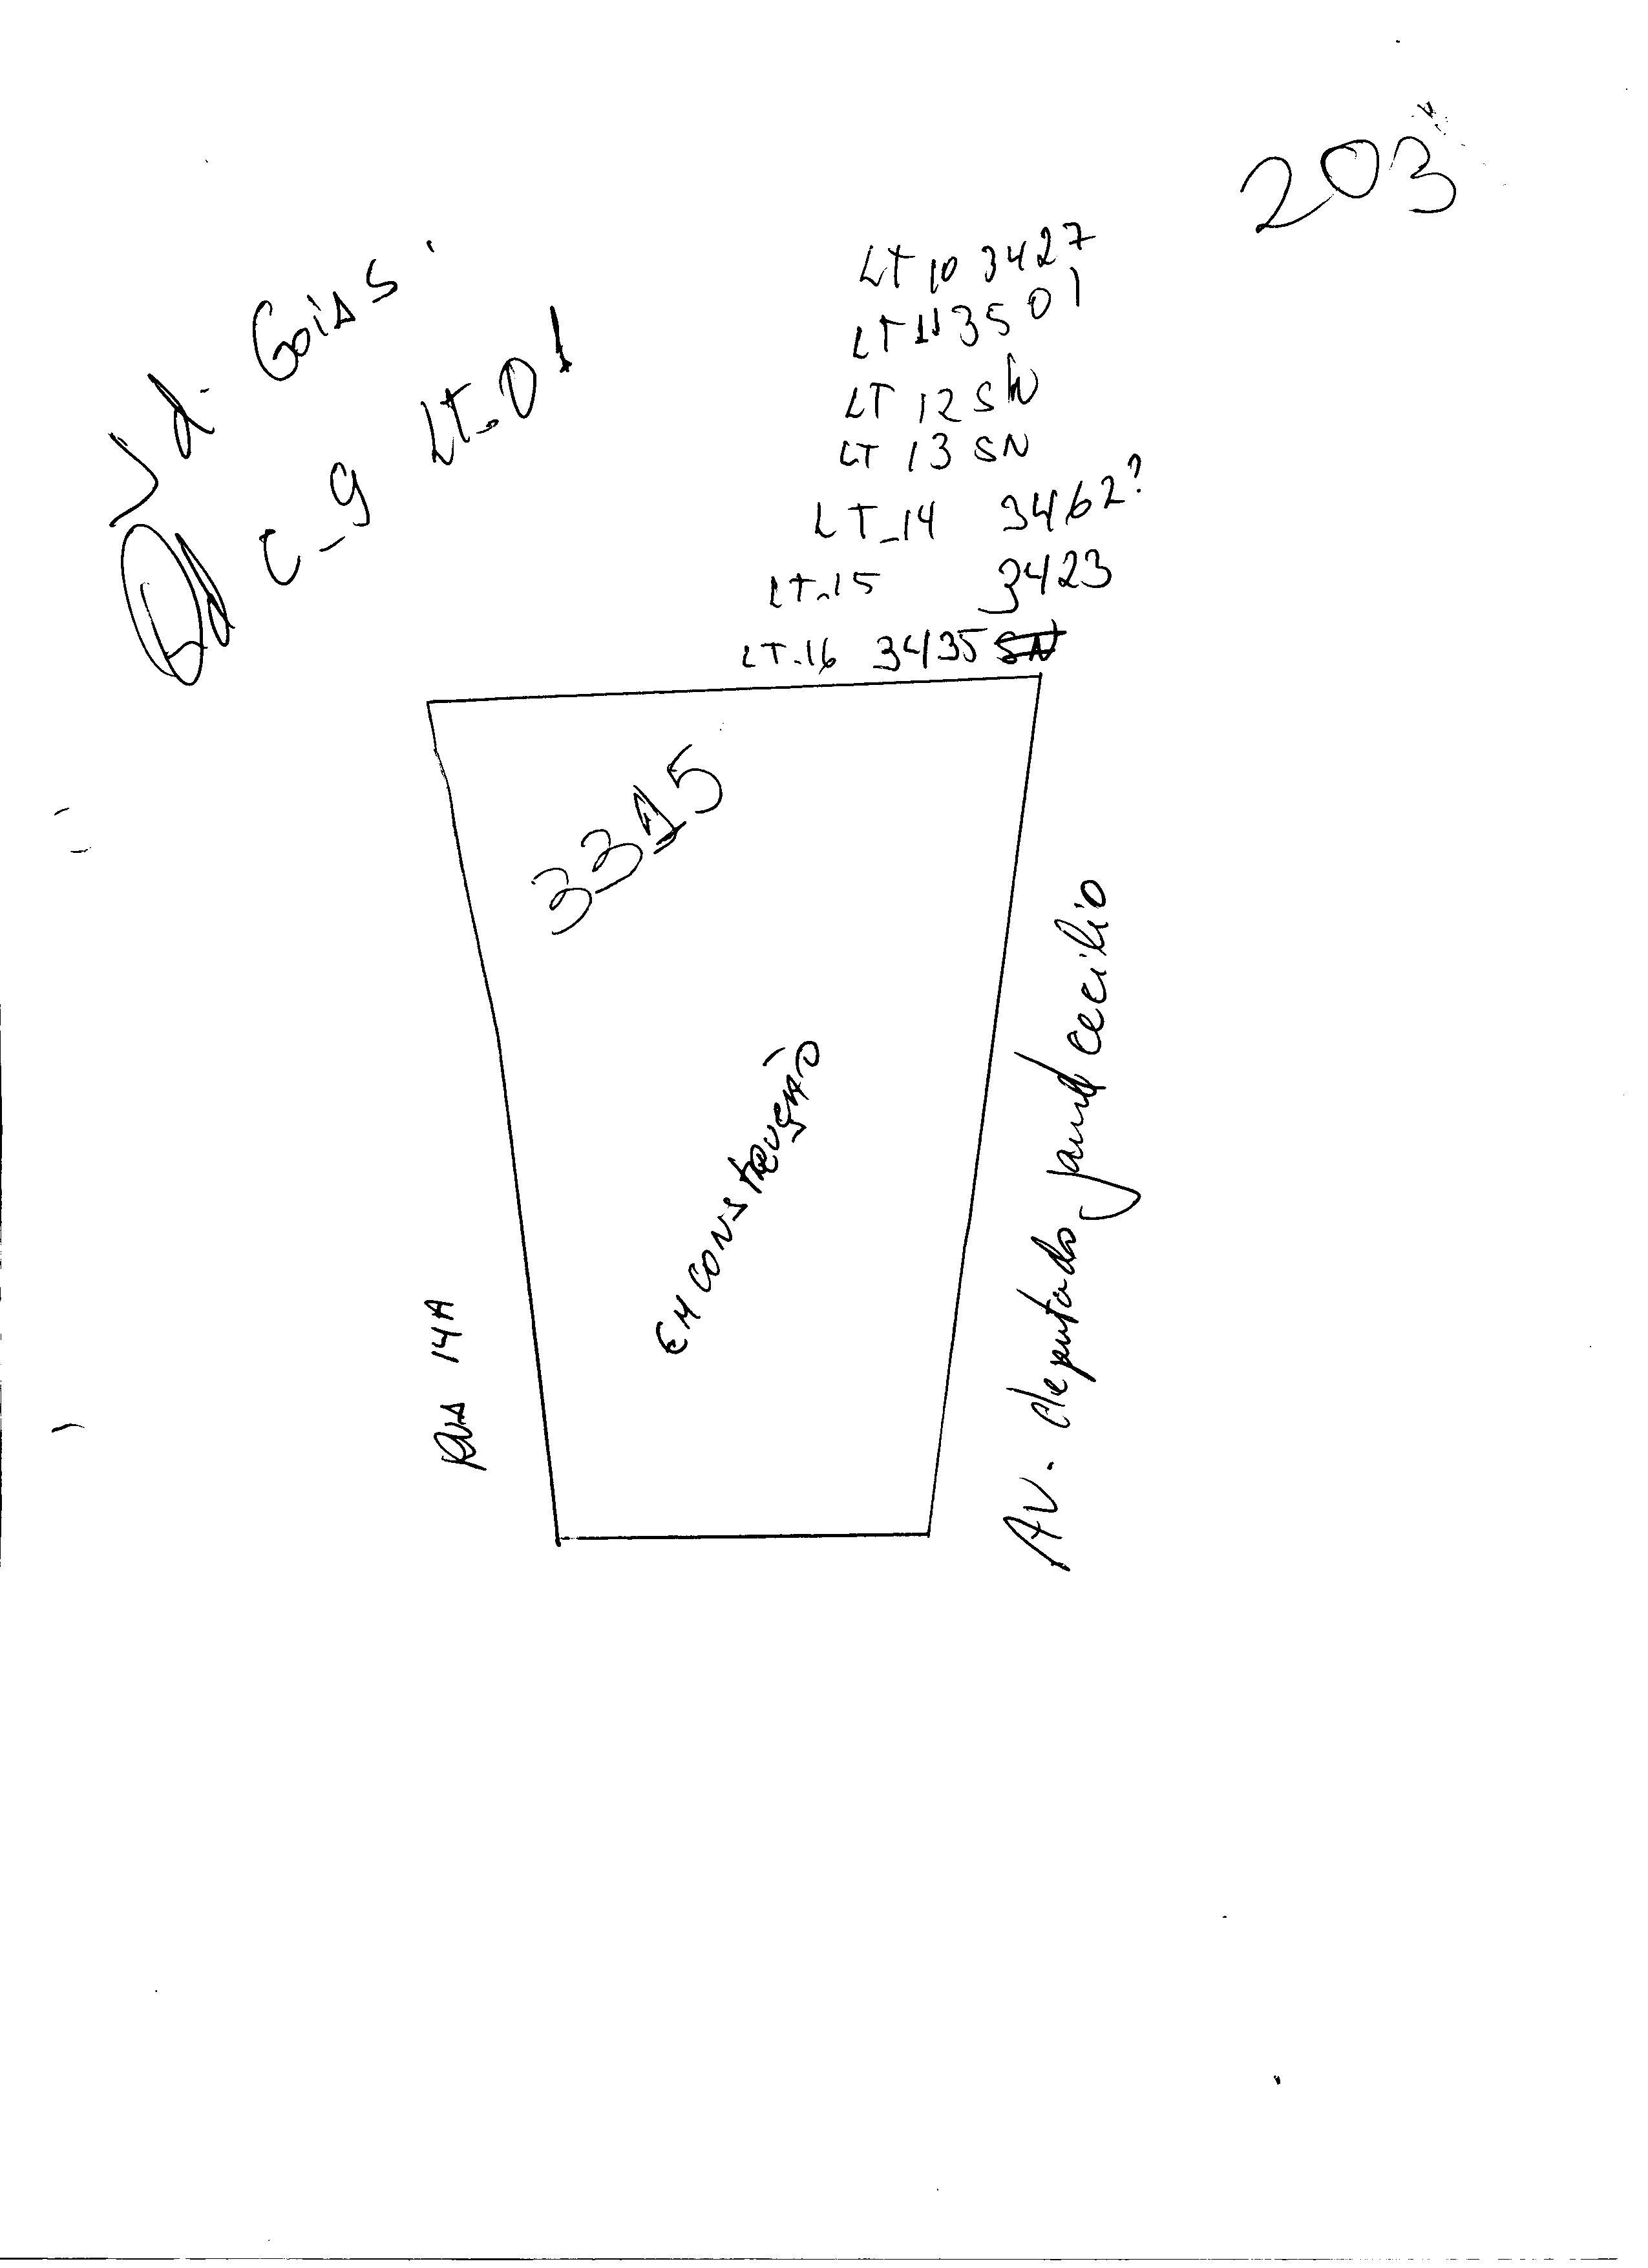 203
Jd. Goiás
Qd C-9 LT-01
LT 10 3427
LT 11 3501
LT 12 SN
LT 13 SN
LT-14 3462?
LT-15 3423
LT-16 3435 SN
3315
EM CONSTRUÇÃO
RUA 14A
Av. deputado jamel cecilio